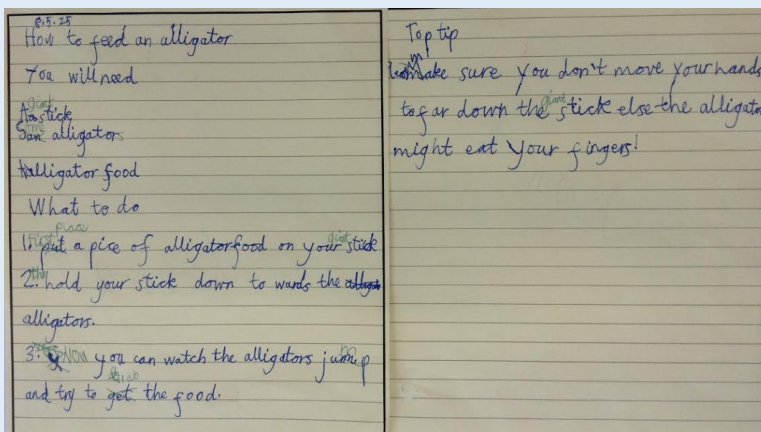 8.5.25
How to feed an alligator
You will need
A giant stick
Some alligators
alligator food
What to do
1. First place a pice of alligatorfood on your giant stick
2. hold your stick down to wards the
alligators.
3. Now you can watch the alligators jump
and try to grab the food.
Top tip
make sure you don't move your hands
to far down the giant stick else the alligator
might eat your fingers!